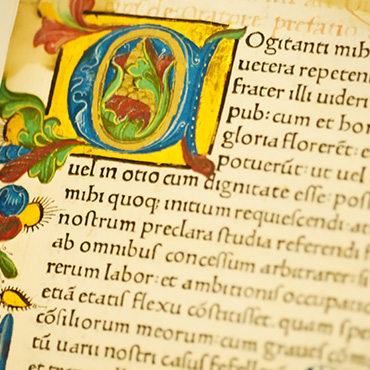 de Oratore prefatio
COgitanti mihi
uetera repeten
frater illi uideri
pub: cum et hon
gloria florerēt: e
potuerūt: ut uel
uel in otio cum dignitate esse: poss
mihi quoq; initium requiescendi: at
nostrum preclara studia referendi f
ab omnibus concessum arbitrarer: si
rerum labor: et ambitionis occupatio
etiā etatis flexu cōstitisset. quam spe
cōsiliorum meorum: cum graues cōm
tū uarii nostri casus fefell